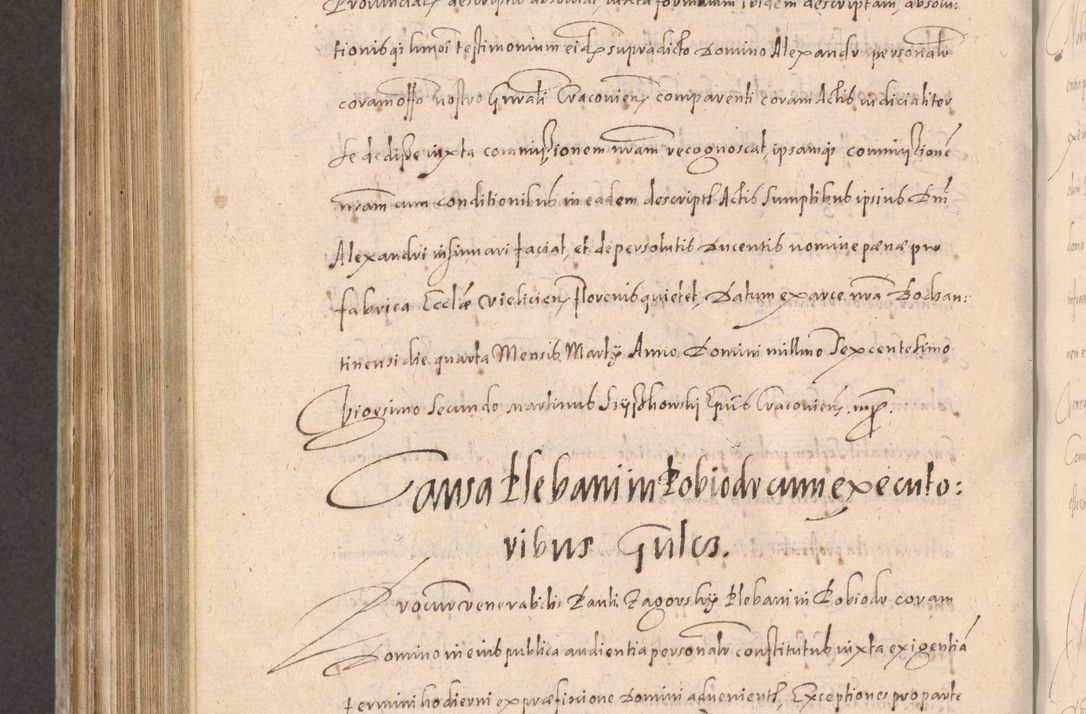 Provincial descripta absolvat iuxta formulam ibidem descriptam, absolu:
tionisqꝫ huiusmoi testimonium eidem supradicto Domino Alexandro personalr
coram offo nostro Gnrali Cracovien comparenti coram Actis iudicialiter
se dedisse iuxta commissionem nram recognoscat, ipsamqꝫ commissionē
nram cum conditionibus in eadem descriptis Actis sumptibus ipsius Dni
Alexandri insinuari faciat, et de persolutis Ducentis nomine pænæ pro
fabrica Eccliæ Vielicien florenis quietet, Datum ex arce nra Bodzan:
tinensi die quarta Mensis Martÿ Anno Domini millmo Sexcentesimo
Vigesimo secundo Martinus Szÿszkowski Epus Cracovien, mp.
Causa Plebani in Pobiodr cum executo:
ribus Gnlcs.
Procur venerabilis Pauli Zagorskÿ Plebani in Pobiodr coram
Domino in eius publica audientia personalr constitutus iuxta exigentiā
termini hodierni ex præfixione Domini advenientis, Exceptiones pro parte